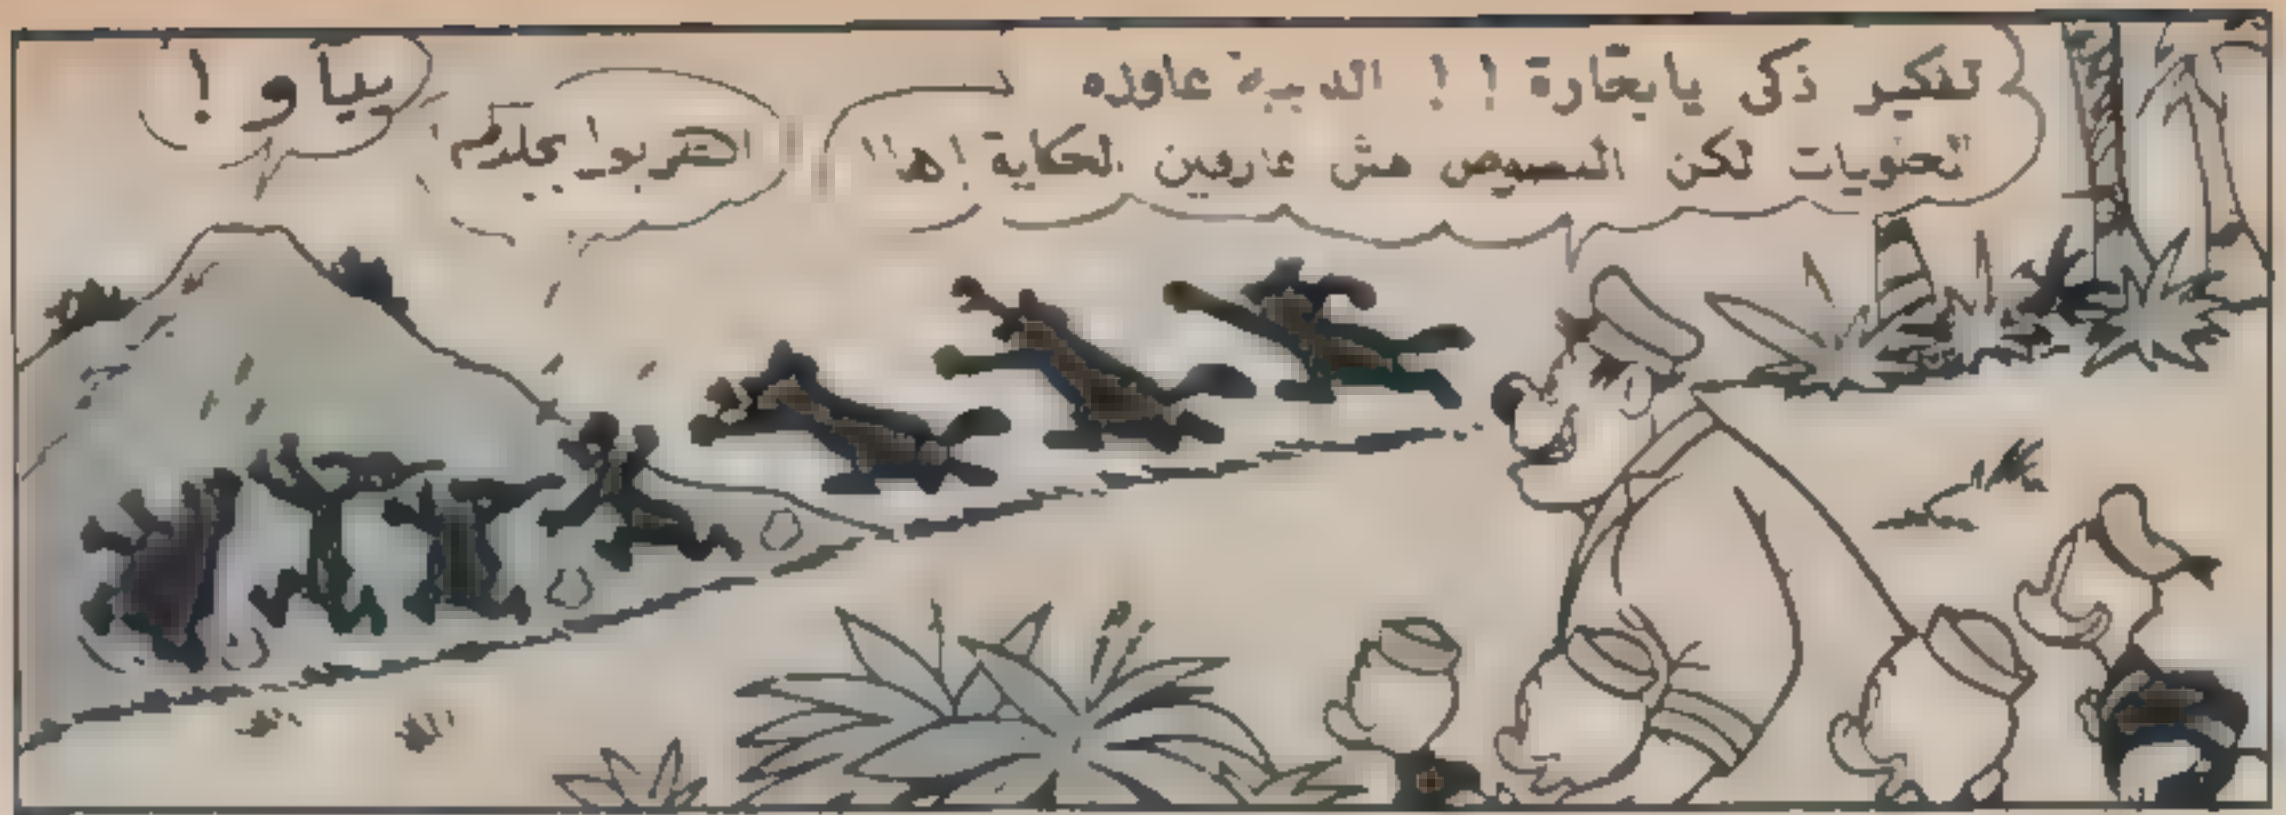 تفكير ذكى يا بحارة !! الدببه عاوزه
الحلويات لكن اللصوص مش عارفين الحكاية ! ها !
اهربوا بجلدكم
ياو !